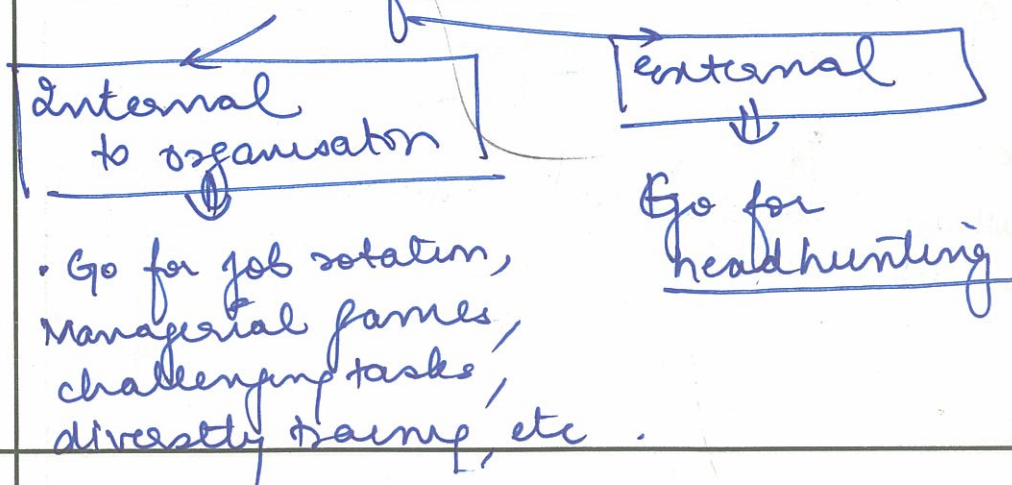 Internal
to organisaton
⇓
• Go for job rotation,
Managerial games,
challenging tasks,
diverstty trainng, etc.
external
⇓
Go for
headhunting